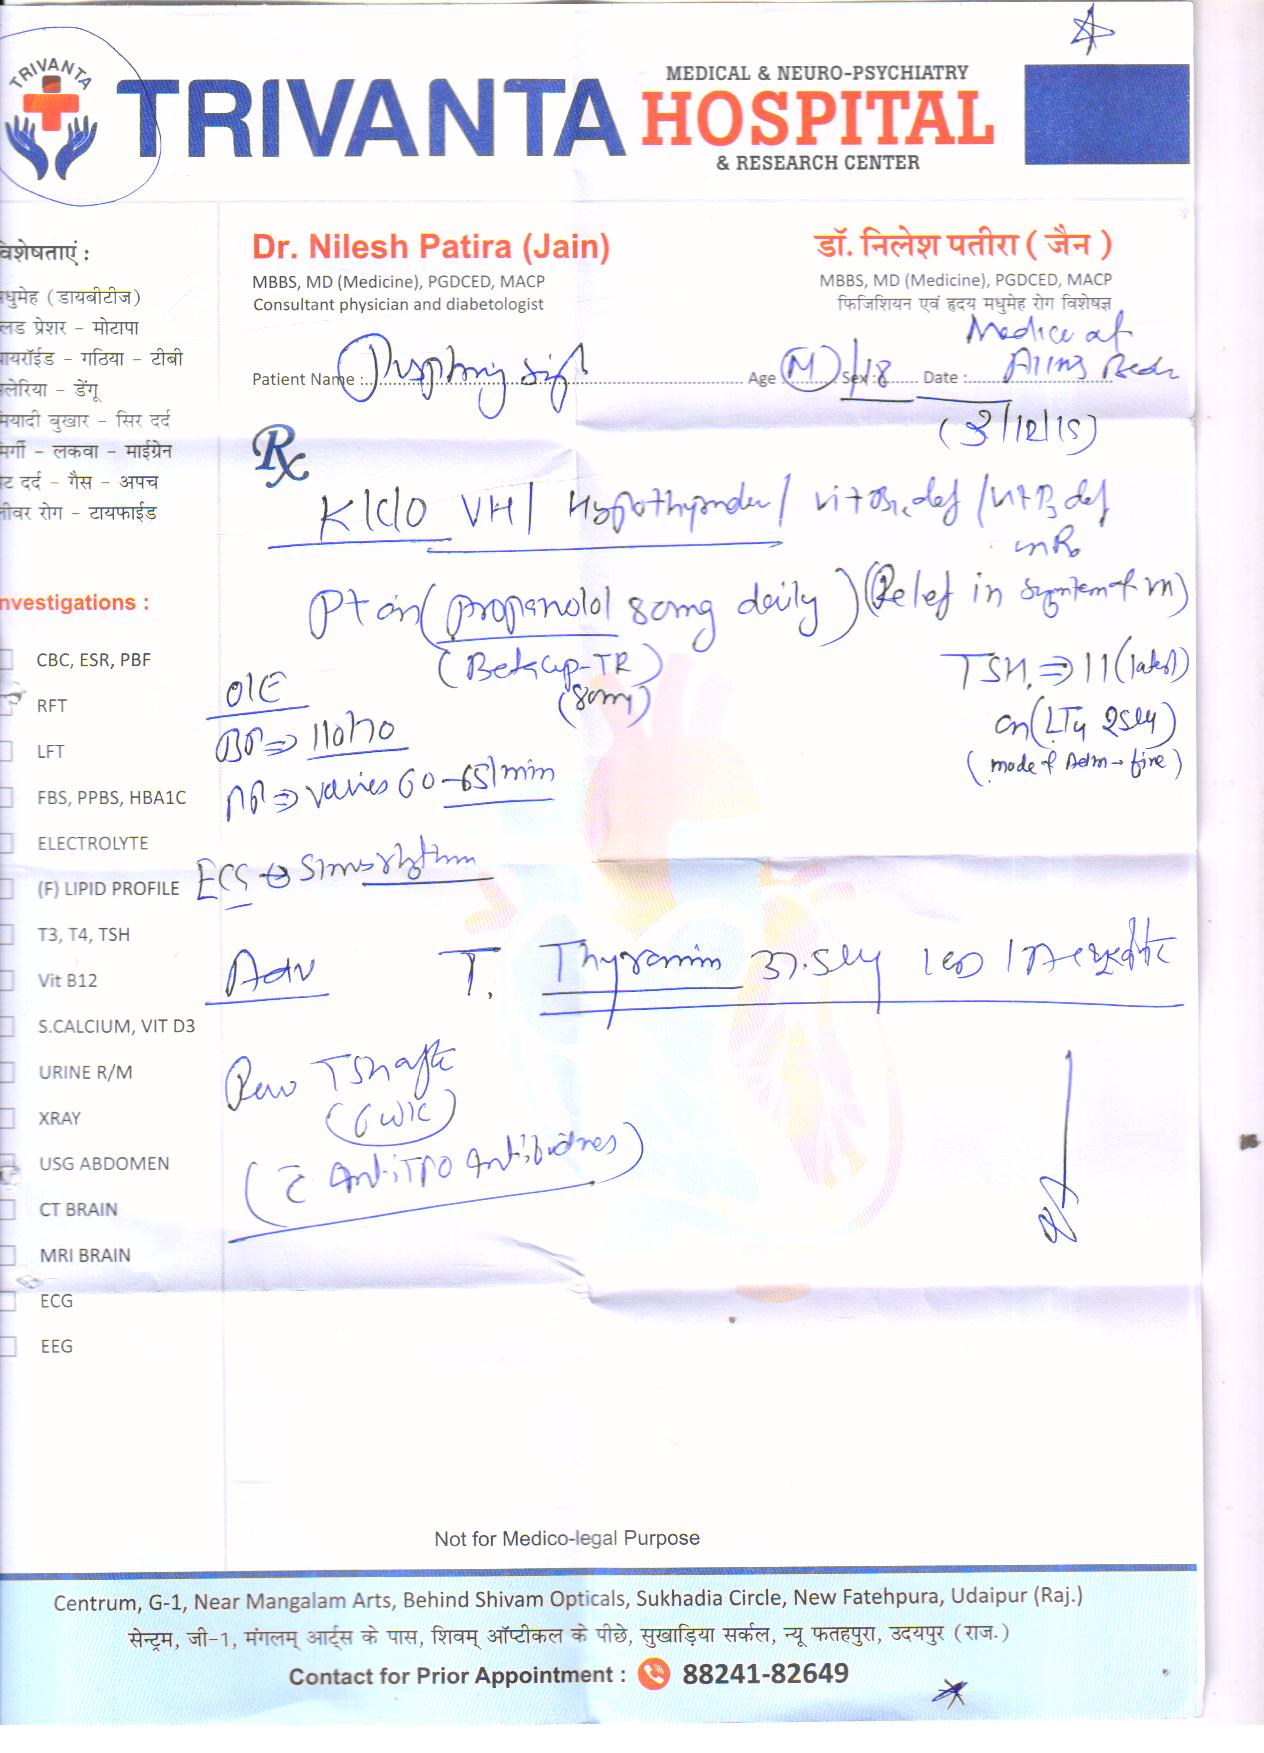 TRIVANTA
TRIVANTA
MEDICAL & NEURO-PSYCHIATRY
HOSPITAL
& RESEARCH CENTER
Dr. Nilesh Patira (Jain)
MBBS, MD (Medicine), PGDCED, MACP
Consultant physician and diabetologist
डॉ. निलेश पतीरा ( जैन )
MBBS, MD (Medicine), PGDCED, MACP
फिजिशियन एवं हृदय मधुमेह रोग विशेषज्ञ
Patient Name : Age M Sex : /18 Date :
Rx
K/C/O VH / / def / def
Pt on (propanolol 80mg daily) (Relief in
(Betacap-TR)
(80mg)
TSH ⇒ 11 (latest)
on (LT4 25
(mode of Adm → fine)
O/E
BP ⇒ 110/70
⇒ varies 60-65/min
ECG → Sinus rhythm
Adv T. Thyronim 37.5
TSH after
(6 wk)
(c̄ Anti TPO Antibodies)
विशेषताएं :
मधुमेह (डायबीटीज)
ब्लड प्रेशर - मोटापा
थायरॉईड - गठिया - टीबी
मलेरिया - डेंगू
मियादी बुखार - सिर दर्द
मिर्गी - लकवा - माईग्रेन
पेट दर्द - गैस - अपच
लीवर रोग - टायफाईड
Investigations :
CBC, ESR, PBF
RFT
LFT
FBS, PPBS, HBA1C
ELECTROLYTE
(F) LIPID PROFILE
T3, T4, TSH
Vit B12
S.CALCIUM, VIT D3
URINE R/M
XRAY
USG ABDOMEN
CT BRAIN
MRI BRAIN
ECG
EEG
Not for Medico-legal Purpose
Centrum, G-1, Near Mangalam Arts, Behind Shivam Opticals, Sukhadia Circle, New Fatehpura, Udaipur (Raj.)
सेन्ट्रम, जी-1, मंगलम् आर्ट्स के पास, शिवम् ऑप्टीकल के पीछे, सुखाड़िया सर्कल, न्यू फतहपुरा, उदयपुर (राज.)
Contact for Prior Appointment : 88241-82649